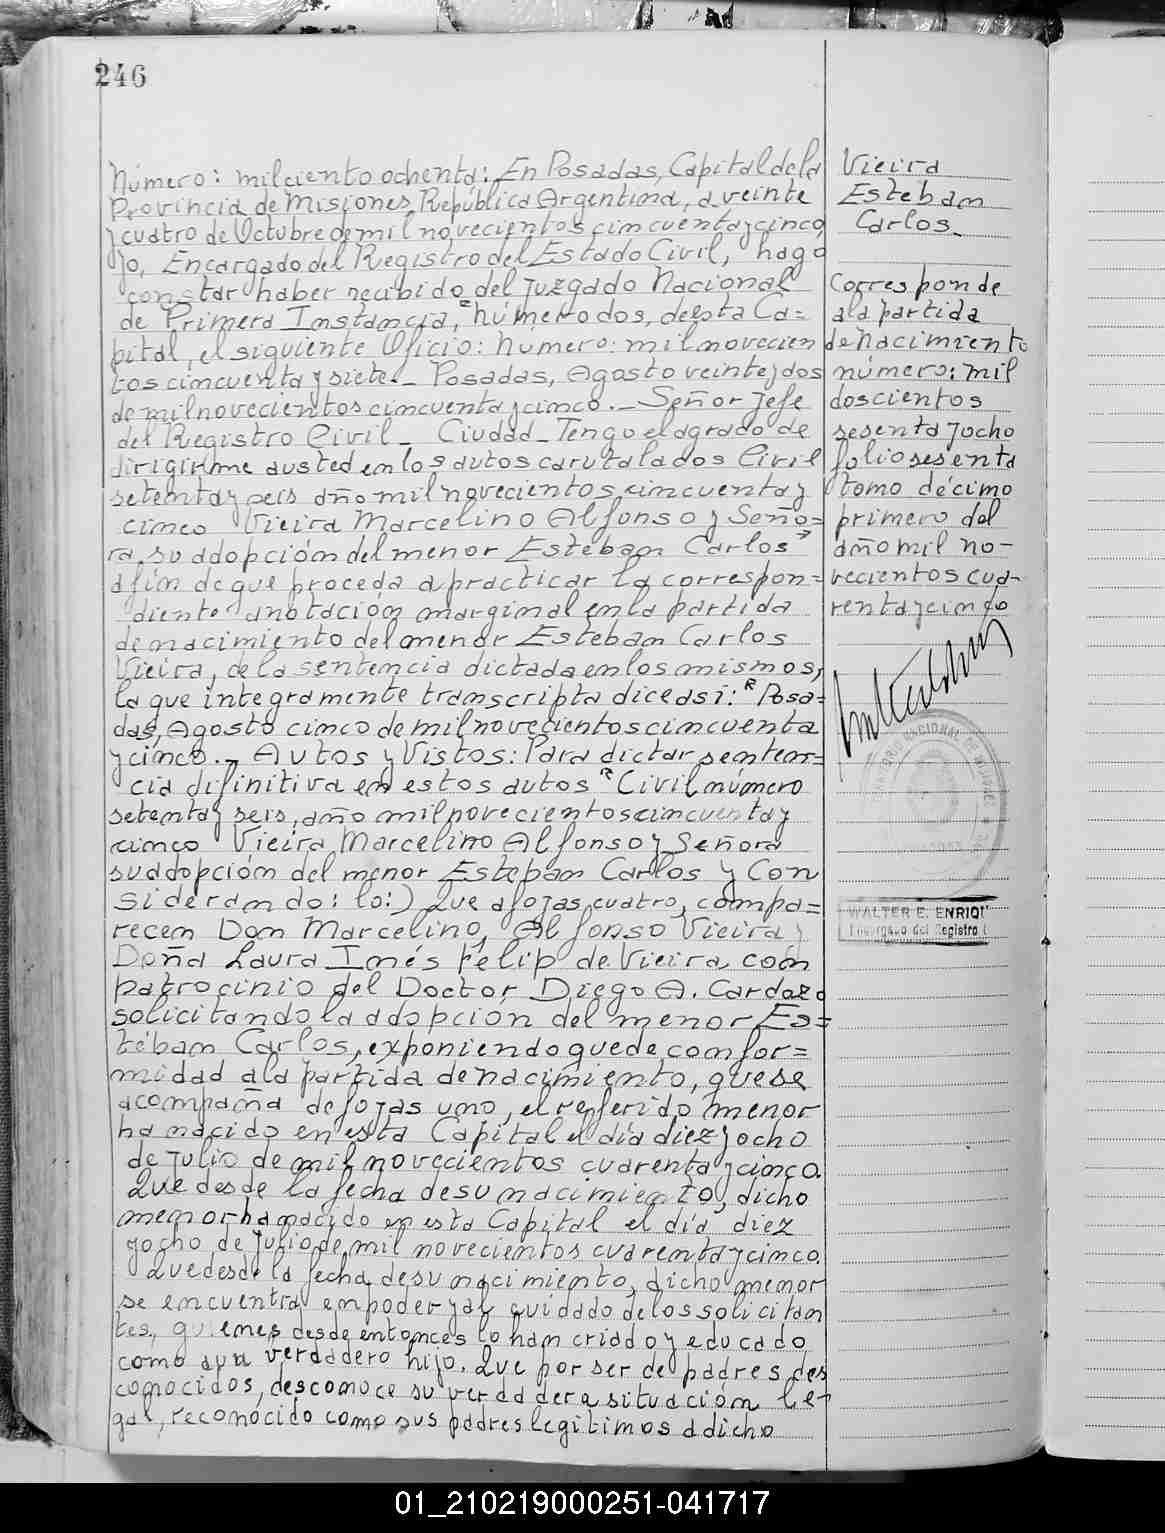 246
Número: mil ciento ochenta: En Posadas, Capital de la
Provincia de Misiones, República Argentina, a veinte
y cuatro de Octubre de mil novecientos cincuenta y cinco
yo, Encargado del Registro del Estado Civil, hago
constar haber recibido del Juzgado Nacional
de Primera Instancia, número dos, de esta Ca=
pital, el siguiente Oficio: Número: mil novecien
tos cincuenta y siete._ Posadas, Agosto veinte y dos
de mil novecientos cincuenta y cinco._ Señor Jefe
del Registro Civil_ Ciudad_ Tengo el agrado de
dirigirme a usted en los autos carutalados Civil
setenta y seis año mil novecientos cincuenta y
cinco Vieira Marcelino Alfonso y Seño=
ra, su adopción del menor Esteban Carlos"
a fin de que proceda a practicar la correspon=
diente anotación marginal en la partida
de nacimiento del menor Esteban Carlos
Vieira, de la sentencia dictada en los mismos,
la que integramente transcripta dice así: "Posa=
das, Agosto cinco de mil novecientos cincuenta
y cinco._ Autos y Vistos: Para dictar senten=
cia difinitiva en estos autos "Civil número
setenta y seis, año mil novecientos cincuenta y
cinco Vieira Marcelino Alfonso y Señora
su adopción del menor Esteban Carlos y Con
siderando: 1o:) Que a fojas cuatro, compa=
recen Don Marcelino, Alfonso Vieira y
Doña Laura Inés Felip de Vieira con
patrocinio del Doctor Diego A. Cardozo
solicitando la adopción del menor Es=
téban Carlos, exponiendo que de confor=
midad a la partida de nacimiento, que se
acompaña de fojas uno, el referido menor
ha nacido en esta Capital el día diez y ocho
de Julio de mil novecientos cuarenta y cinco.
Que desde la fecha de su nacimiento, dicho
menor ha nacido en esta Capital el día diez
y ocho de Julio de mil novecientos cuarenta y cinco.
Que desde la fecha de su nacimiento, dicho menor
se encuentra en poder y al cuidado de los solicitan
tes, quienes desde entonces lo han criado y educado
como a su verdadero hijo. Que por ser de padres des
conocidos, desconoce su verdadera situación le-
gal, reconocido como sus padres legitimos a dicho
Vieira
Estéban
Carlos_
Corresponde
a la partida
de Nacimiento
número: mil
doscientos
sesenta y ocho
folio sesenta
tomo décimo
primero del
año mil no-
vecientos cua-
renta y cinco
WALTER E. ENRIQU
Encargado del Registro C
01_210219000251-041717